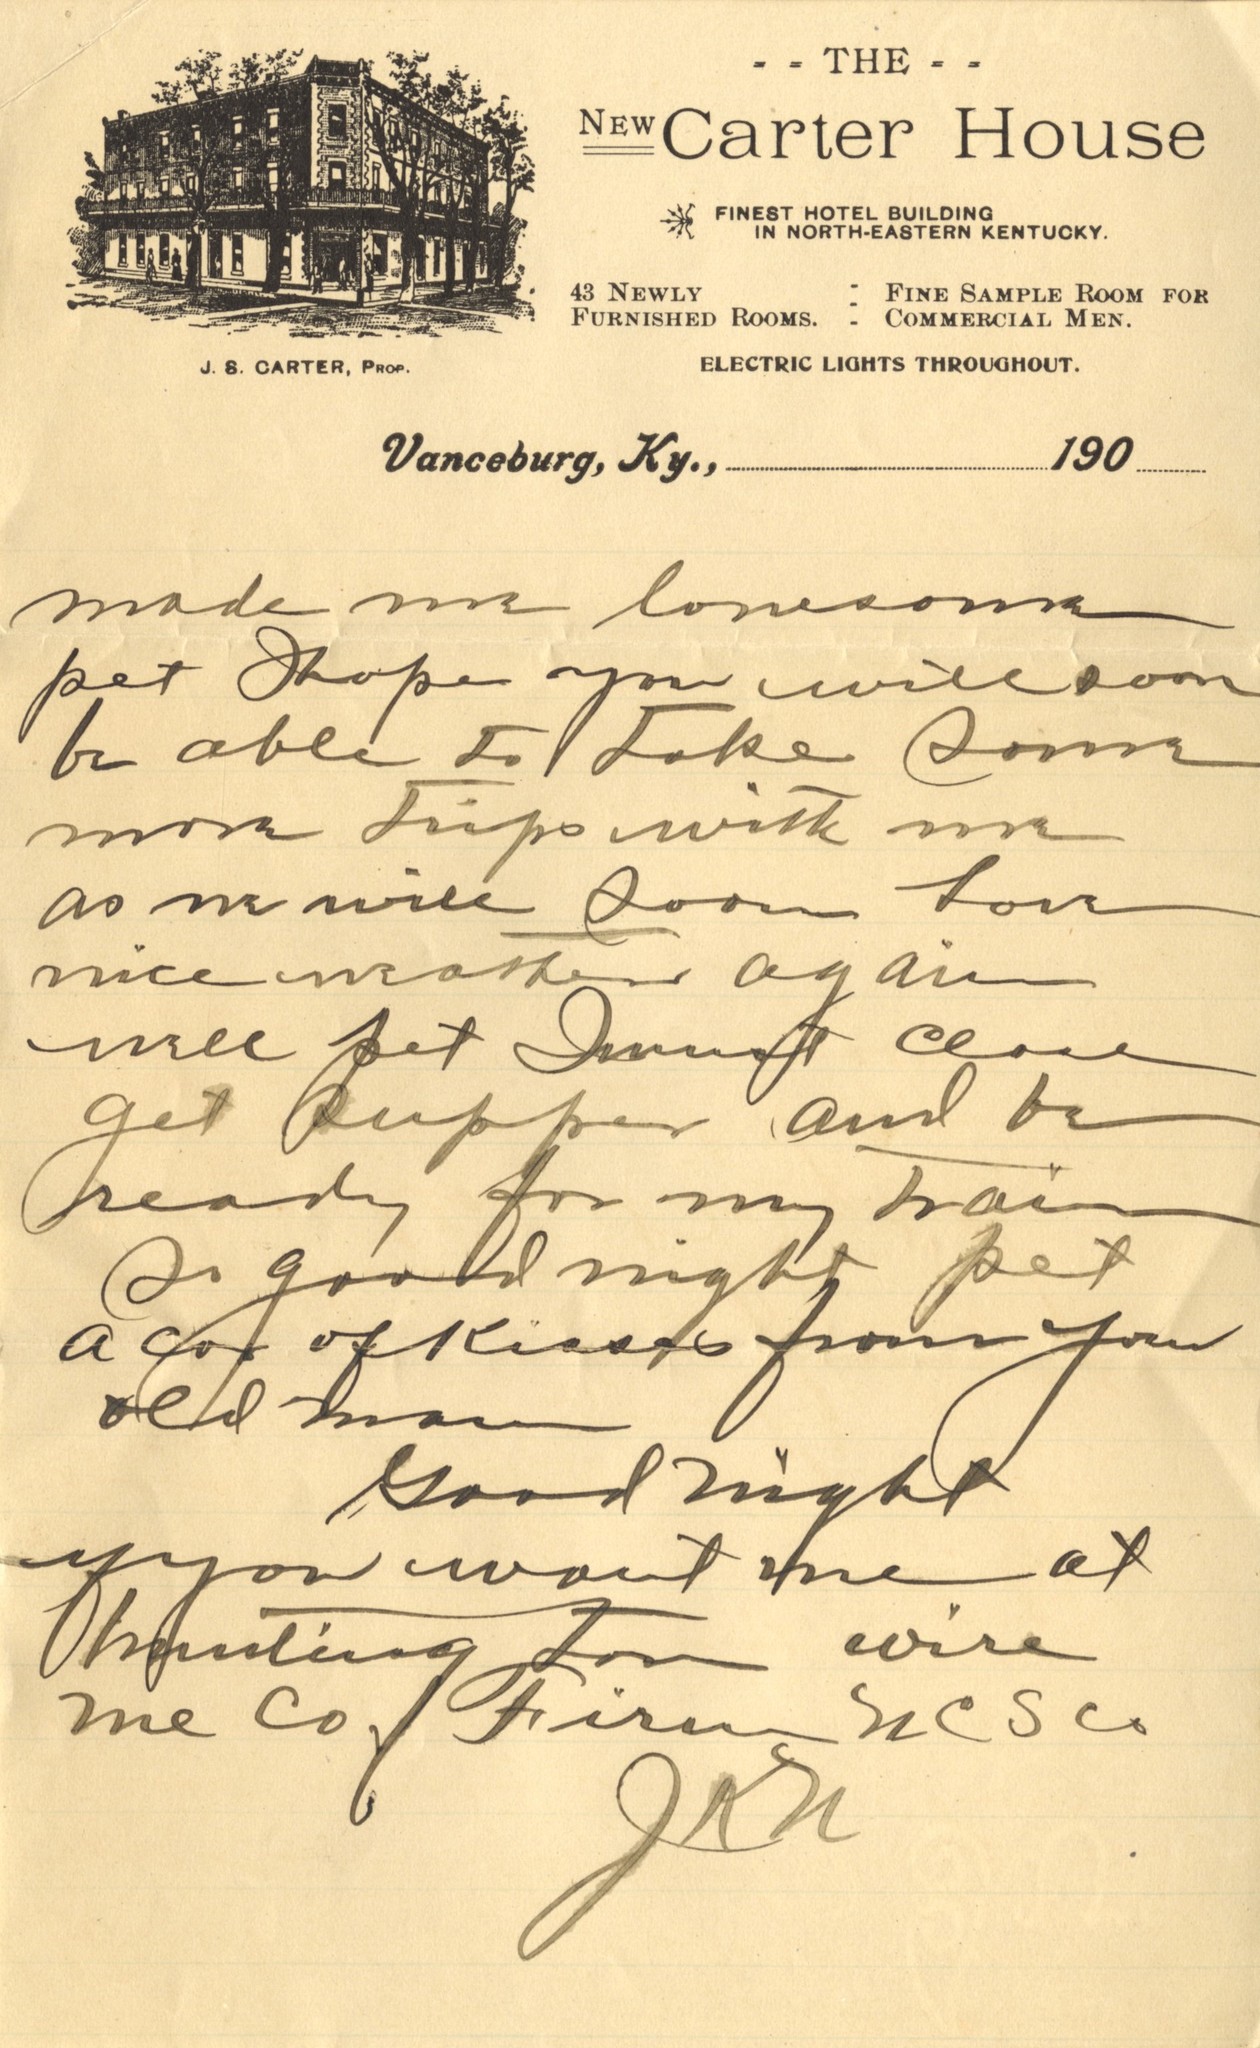 - - THE - -
NEW Carter House
FINEST HOTEL BUILDING
IN NORTH-EASTERN KENTUCKY.
43 NEWLY : FINE SAMPLE ROOM FOR
FURNISHED ROOMS. - COMMERCIAL MEN.
J. S. CARTER, PROP.
ELECTRIC LIGHTS THROUGHOUT.
Vanceburg, Ky., 190
made me lonesome
pet I hope you will soon
be able to take some
more trips with me
as we will soon have
nice weather again
well pet I must close
get supper and be
ready for my train
so good night pet
a car of kisses from your
old man
Good night
if you want me at
Huntington wire
me Co Firm N C S Co
J K N